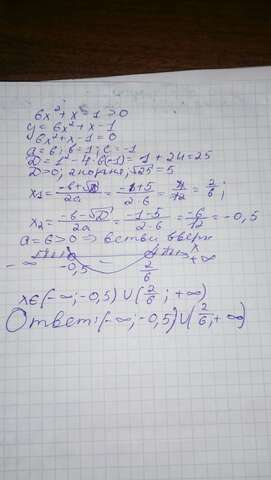 6x²+x-1>0
y=6x²+x-1
6x²+x-1=0
a=6; b=1; c=-1
D=1²-4·6·(-1)=1+24=25
D>0, 2 корня, √25=5
x1=(-b+√D)/2a=(-1+5)/2·6=4/12=2/6;
x2=(-b-√D)/2a=(-1-5)/2·6=-6/12=-0,5
a=6>0 => ветви вверх
-∞ -0,5 - 2/6 x +∞
x∈(-∞;-0,5)∪(2/6;+∞)
Ответ:(-∞;-0,5)∪(2/6;+∞)